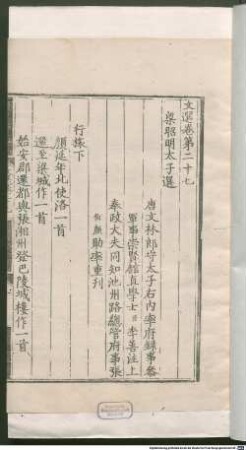 文選卷第二十七
梁昭明太子選
唐文林郎守太子右內率府錄事參
軍事崇賢館直學士臣李善注上
奉政大夫同知池州路總管府事張
伯顏助率重刊
行旅下
顏延年北使洛一首
還至梁城作一首
始安郡還都與張湘州登巴陵城樓作一首